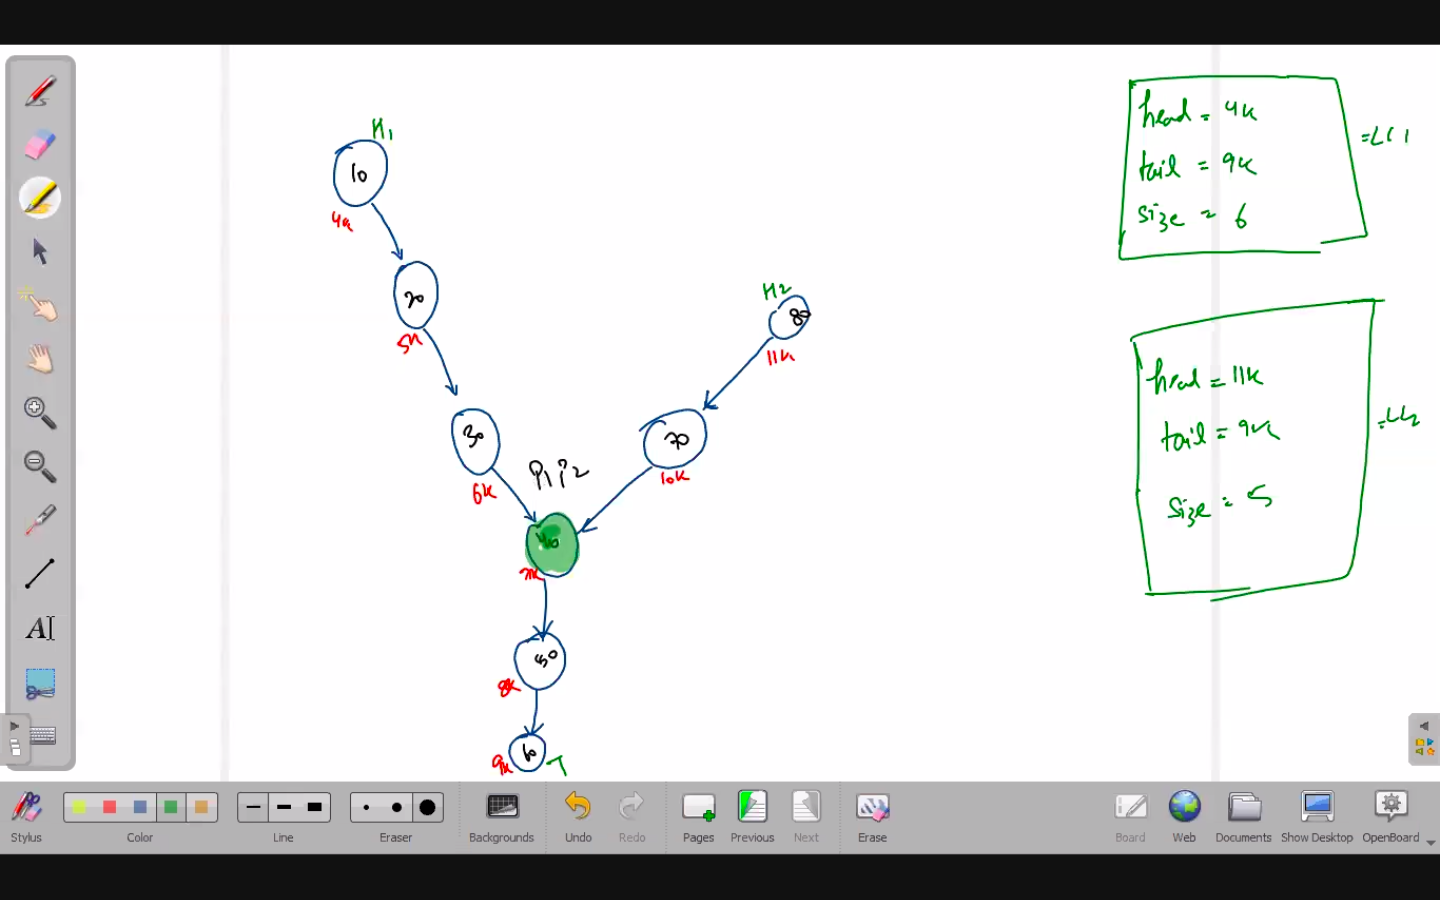 H1
10
4k
20
5k
30
6k
H2
80
11k
70
10k
P1 P2
40
7k
50
8k
60
9k
T
head = 4k
tail = 9k
size = 6
=LL1
head = 11k
tail = 9k
size = 5
=LL2
A
Stylus
Color
Line
Eraser
Backgrounds
Undo
Redo
Pages
Previous
Next
Erase
Board
Web
Documents
Show Desktop
OpenBoard